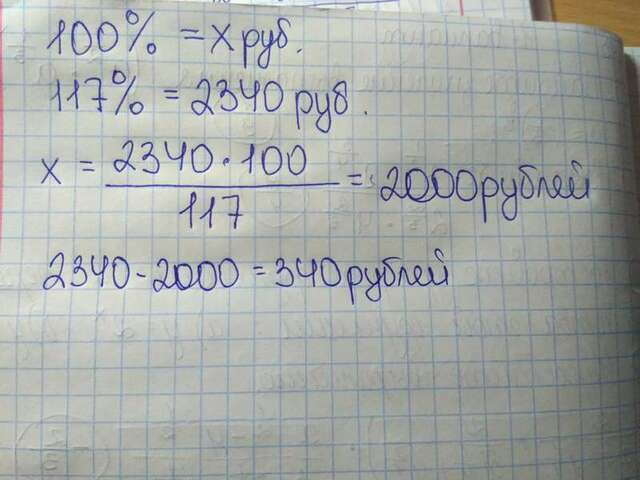 100% = X руб.
117% = 2340 руб.
x = 2340 · 100 / 117 = 2000 рублей
2340 - 2000 = 340 рублей